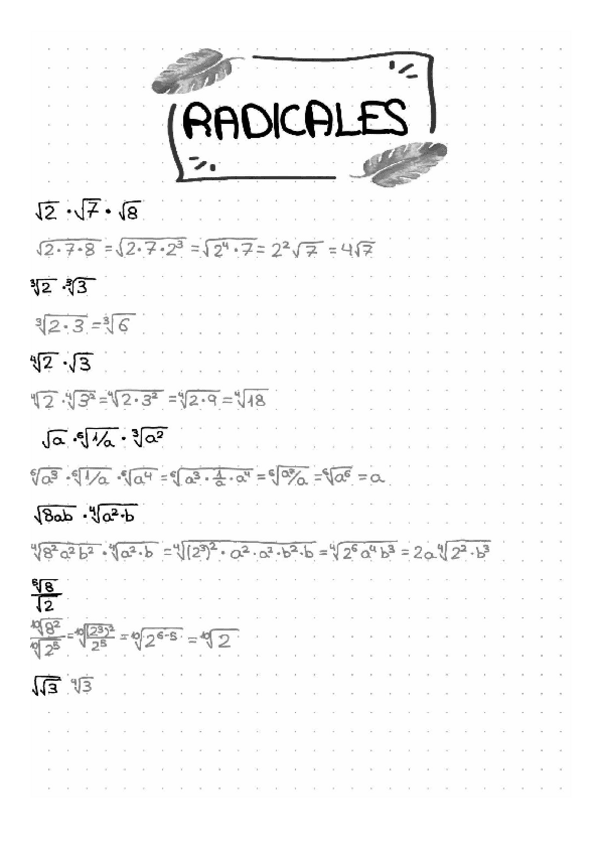 RADICALES
√2 · √7 · √8
√2·7·8 = √2·7·2³ = √2⁴·7 = 2²√7 = 4√7
³√2 · ³√3
³√2·3 = ³√6
⁴√2 · √3
⁴√2 · ⁴√3² = ⁴√2·3² = ⁴√2·9 = ⁴√18
√a · ⁶√1/a · ³√a²
⁶√a³ · ⁶√1/a · ⁶√a⁴ = ⁶√a³·1/a·a⁴ = ⁶√a⁷/a = ⁶√a⁶ = a
√8ab · ⁴√a²·b
⁴√8²a²b² · ⁴√a²·b = ⁴√(2³)²·a²·a²·b²·b = ⁴√2⁶a⁴b³ = 2a⁴√2²·b³
⁵√8
√2
¹⁰√8²/¹⁰√2⁵ = ¹⁰√(2³)²/2⁵ = ¹⁰√2⁶⁻⁵ = ¹⁰√2
√√3 ⁴√3